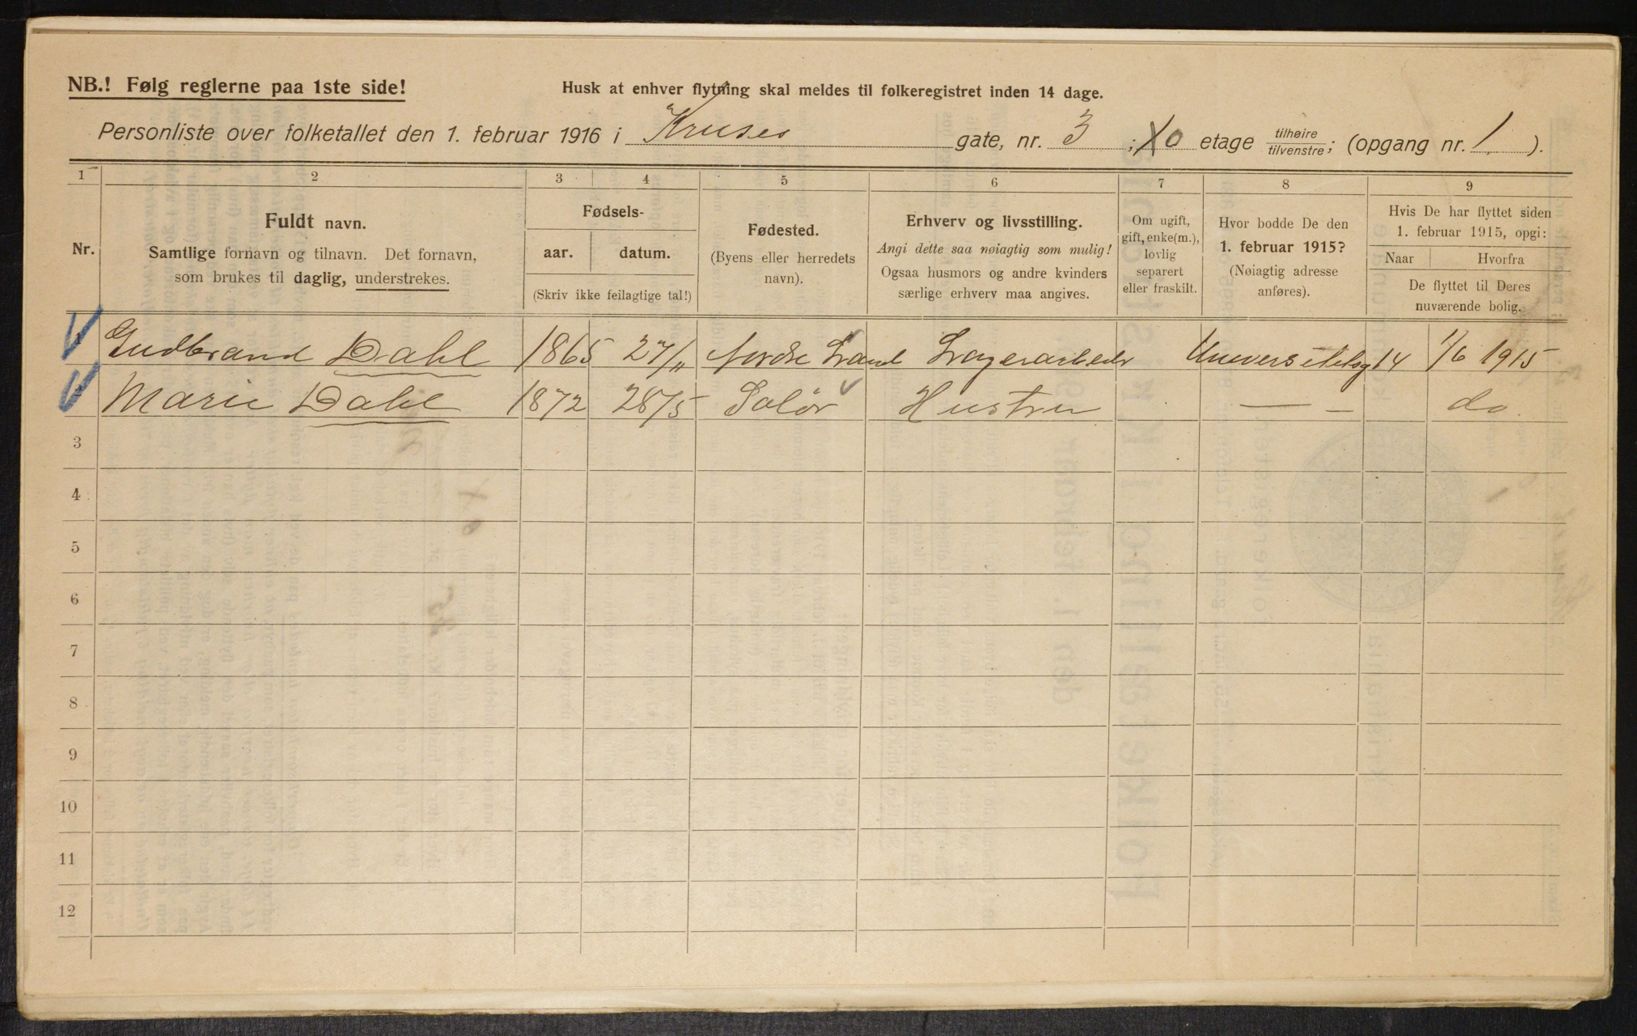 NB.! Følg reglerne paa 1ste side!
Husk at enhver flytning skal meldes til folkeregistret inden 14 dage.
Personliste over folketallet den 1. februar 1916 i Kruses gate, nr. 3 ; 0 etage tilhøire tilvenstre; (opgang nr. 1 ).
1 2 3 4 5 6 7 8 9
Nr.
Fuldt navn.
Samtlige fornavn og tilnavn. Det fornavn,
som brukes til daglig, understrekes.
Fødsels-
aar. datum.
(Skriv ikke feilagtige tal!)
Fødested.
(Byens eller herredets
navn).
Erhverv og livsstilling.
Angi dette saa nøiagtig som mulig!
Ogsaa husmors og andre kvinders
særlige erhverv maa angives.
Om ugift,
gift, enke(m.),
lovlig
separert
eller fraskilt.
Hvor bodde De den
1. februar 1915?
(Nøiagtig adresse
anføres).
Hvis De har flyttet siden
1. februar 1915, opgi:
Naar Hvorfra
De flyttet til Deres
nuværende bolig.
Gudbrand Dahl 1865 27/11 Nordre Land Lagerarbeider Universitetsg 14 1/6 1915
Marie Dahl 1872 28/5 Solør Hustru — – do.
3
4
5
6
7
8
9
10
11
12